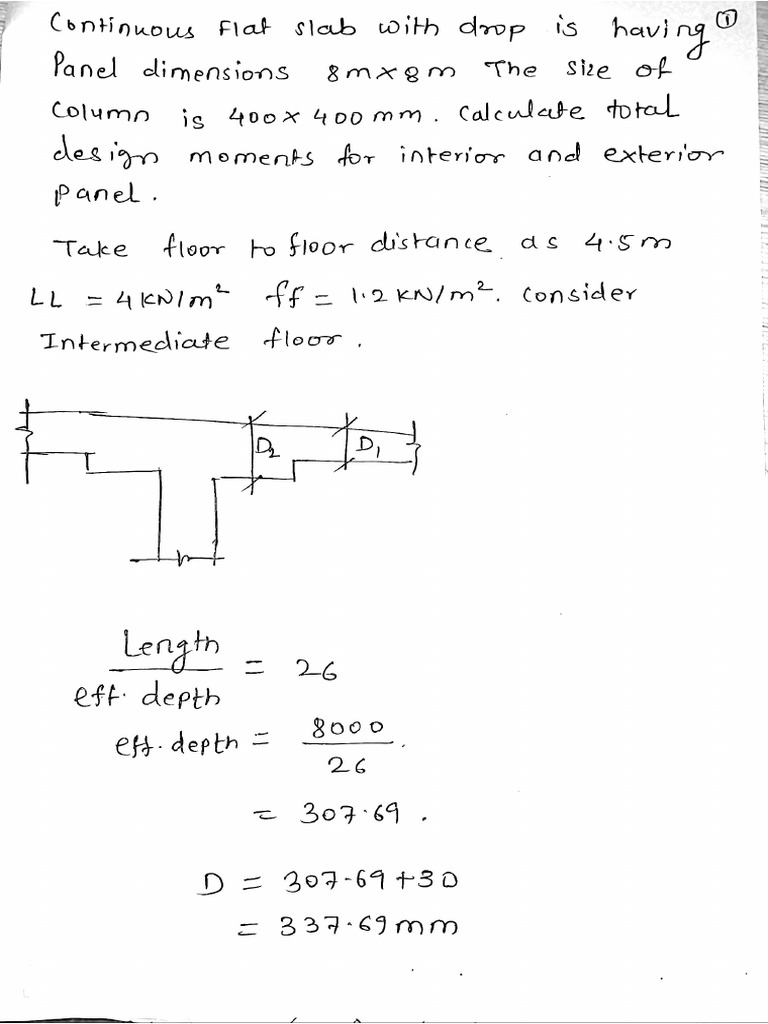 Continuous Flat slab with drop is having ①
Panel dimensions 8m×8m The size of
Column is 400×400mm. Calculate total
design moments for interior and exterior
panel.
Take floor to floor distance as 4.5m
LL = 4KN/m² ff = 1.2KN/m². Consider
Intermediate floor.
D2 D1
Length
eff. depth = 26
eff. depth = 8000
26
= 307.69.
D = 307.69+30
= 337.69mm